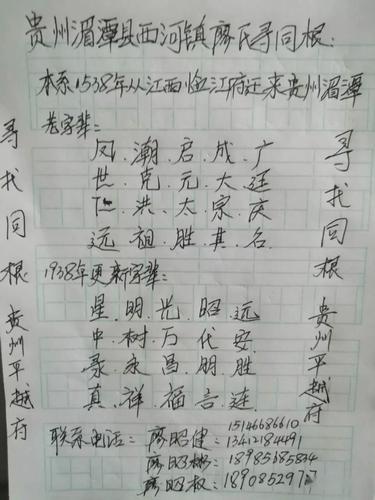 贵州湄潭县西河镇廖氏寻同根:
本系1538年从江西临江府迁来贵州湄潭
老字辈:
凤.潮.启.成.广
世.克.元.大.廷
仁.洪.太.宗.庆
远.祖.胜.其.名
1938年更新字辈:
星.明.光.昭.远
中.树.万.代.安
家.永.昌.朋.胜
真.祥.福.言.连
联系电话:廖昭健:15146686610
13412184491
廖昭彬:18985685834
廖昭权:180985297
寻找同根 贵州平越府
寻找同根 贵州平越府